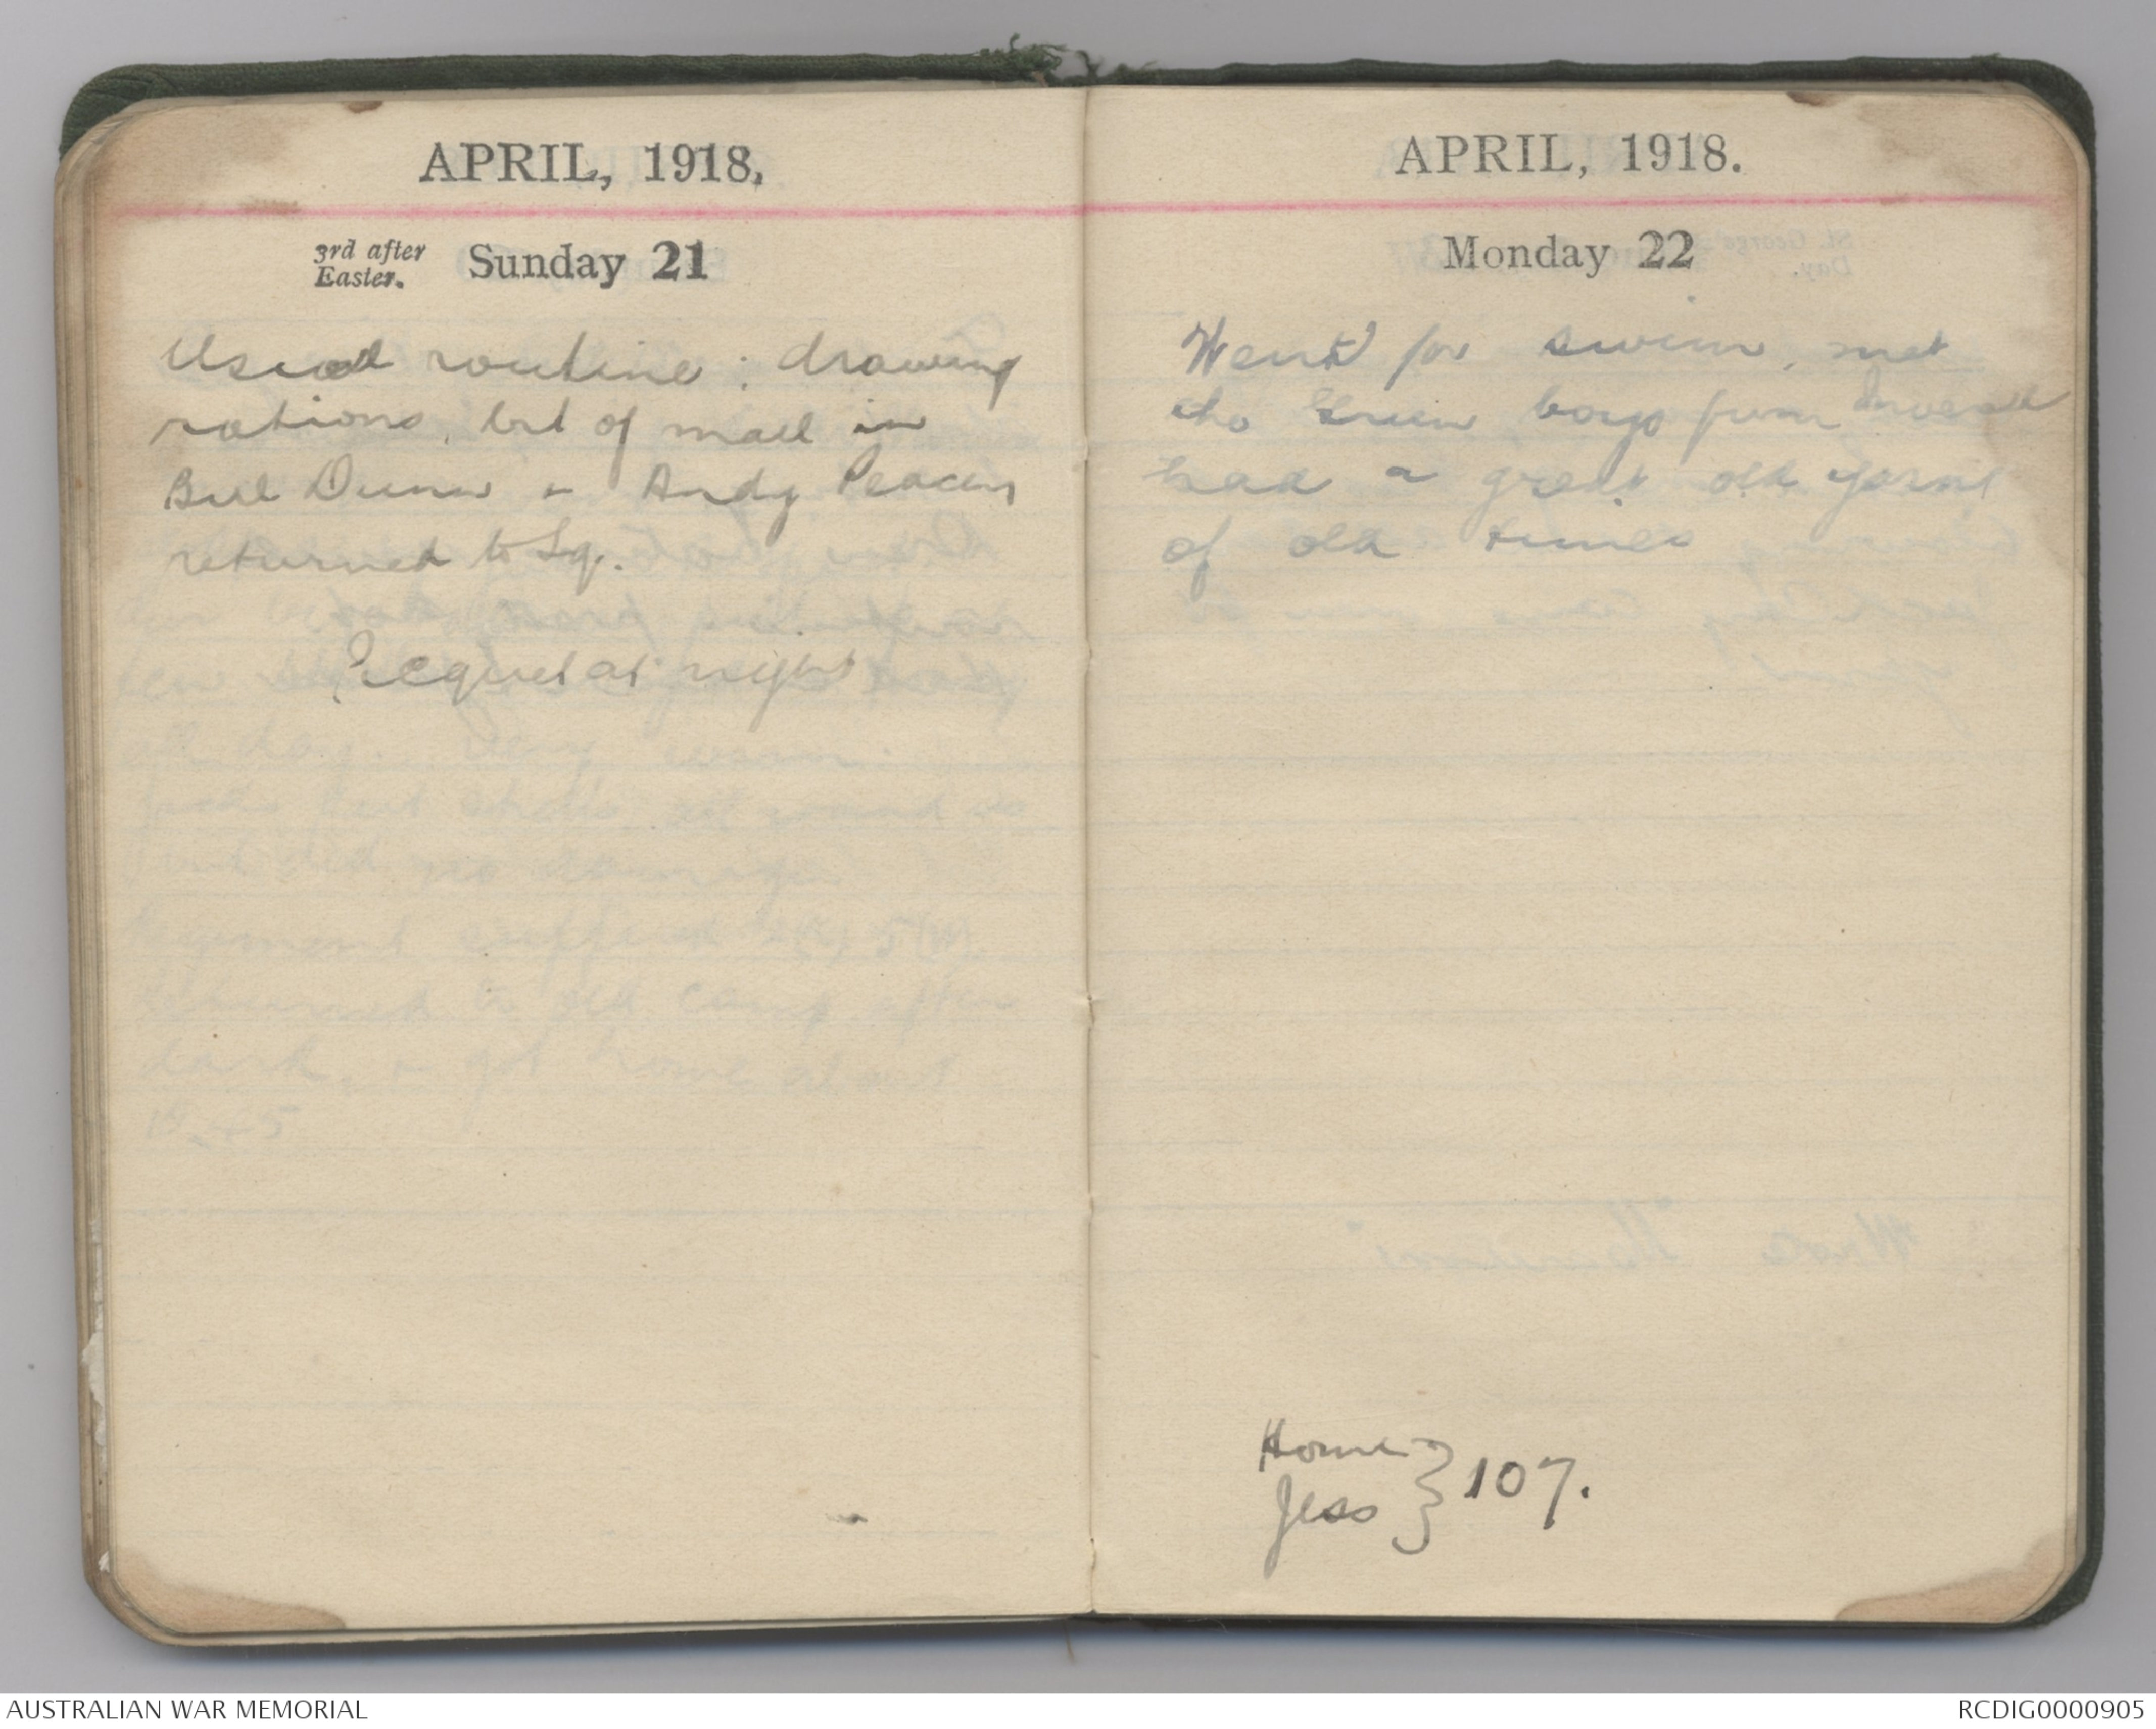 APRIL, 1918.
3rd after Easter. Sunday 21
Usual routine: drawing
rations, bit of mail in
Bill Dunn & Andy
returned to Sq.
Picquet at night
APRIL, 1918.
Monday 22
Went for swim, met
the Green boys from Inverell
had a great old yarn
of old times
Home
Jess } 107.
AUSTRALIAN WAR MEMORIAL
RCDIG0000905